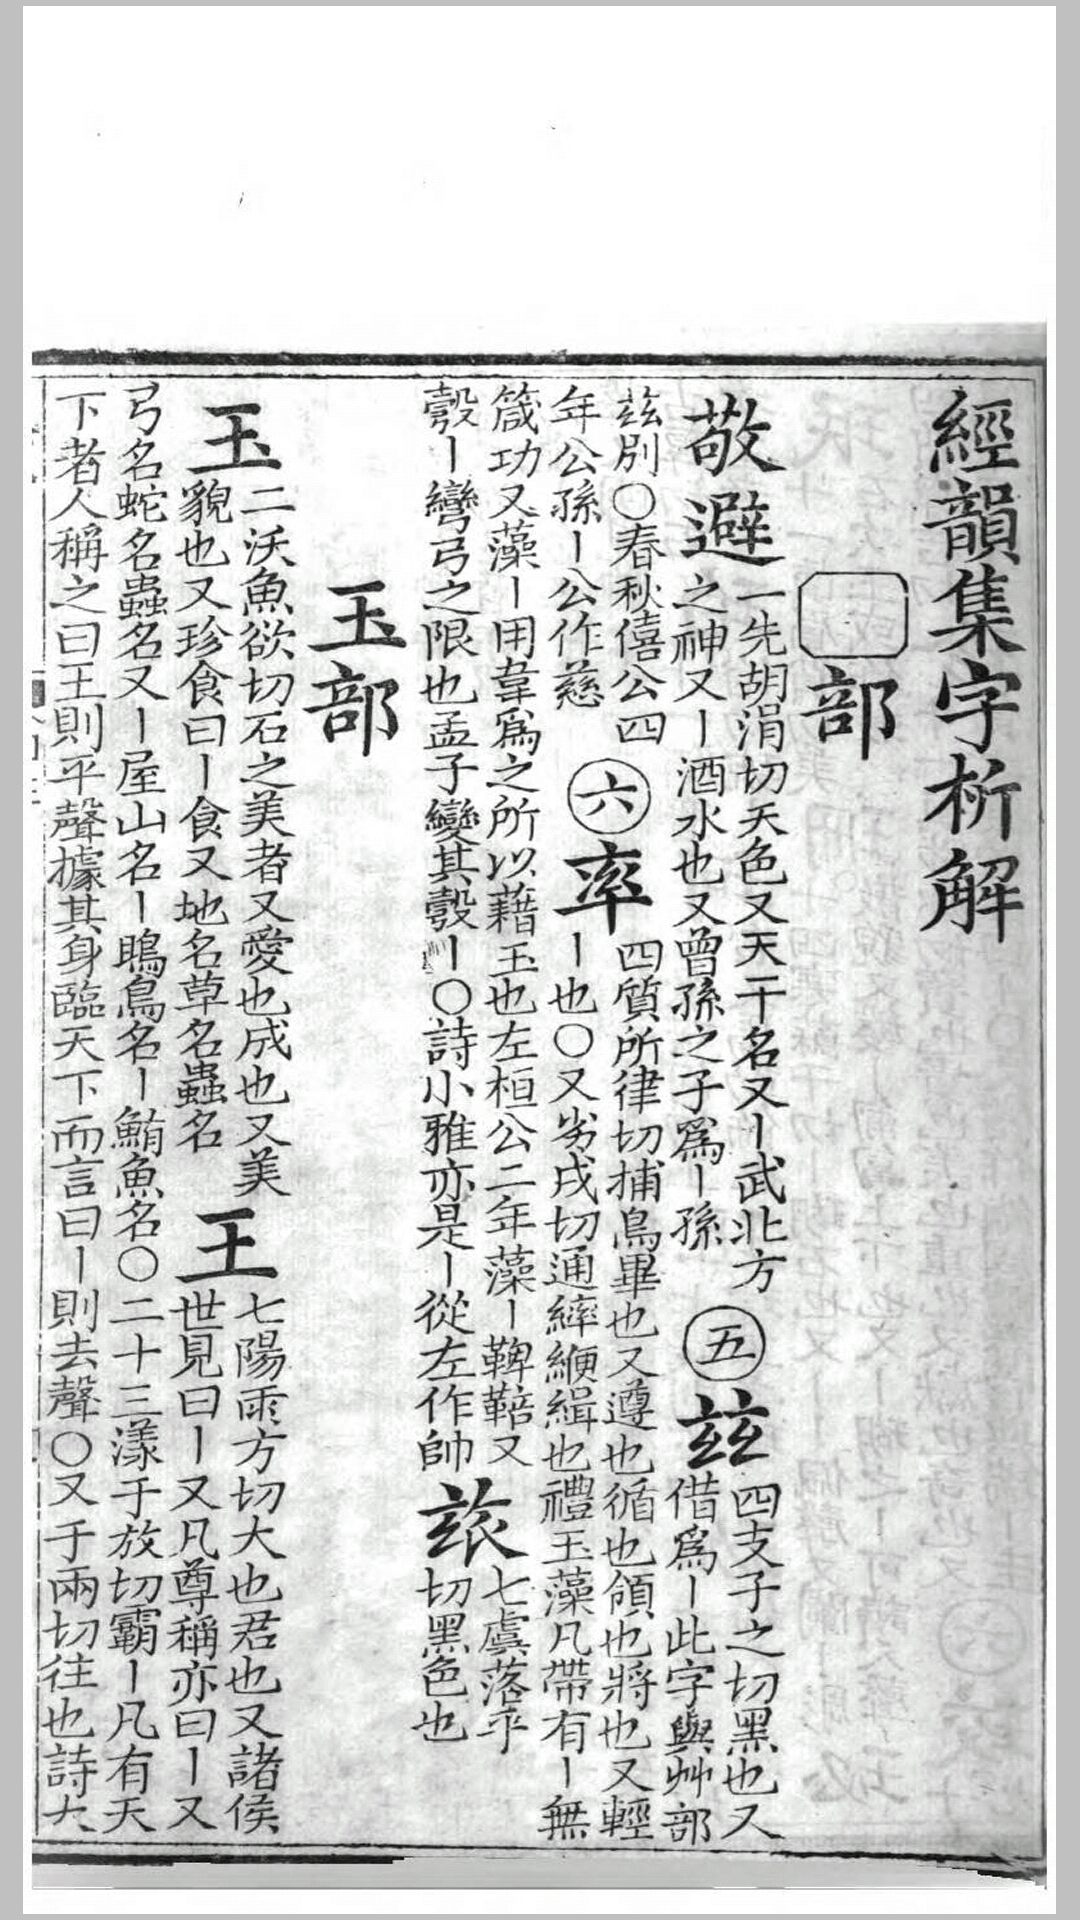 經韻集字析解
部
敬避一先胡涓切天色又天干名又丨武北方
之神又丨酒水也又曾孫之子爲丨孫
五
玆四支子之切黑也又
借爲丨此字與艸部
茲別○春秋僖公四
年公孫丨公作慈
六
率四質所律切捕鳥畢也又遵也循也領也將也又輕
丨也○又劣戌切通繂緶緝也禮玉藻凡帶有丨無
箴功又藻丨用韋爲之所以藉玉也左桓公二年藻丨鞞鞛又
彀丨彎弓之限也孟子變其彀丨○詩小雅亦是丨從左作帥
玈七虞落乎
切黑色也
玉部
玉二沃魚欲切石之美者又愛也成也又美
貌也又珍食曰丨食又地名草名蟲名
王七陽雨方切大也君也又諸侯
世見曰丨又凡尊稱亦曰丨又
弓名蛇名蟲名又丨屋山名丨鴡鳥名丨鮪魚名○二十三漾于放切霸丨凡有天
下者人稱之曰王則平聲據其身臨天下而言曰丨則去聲○又于兩切往也詩大